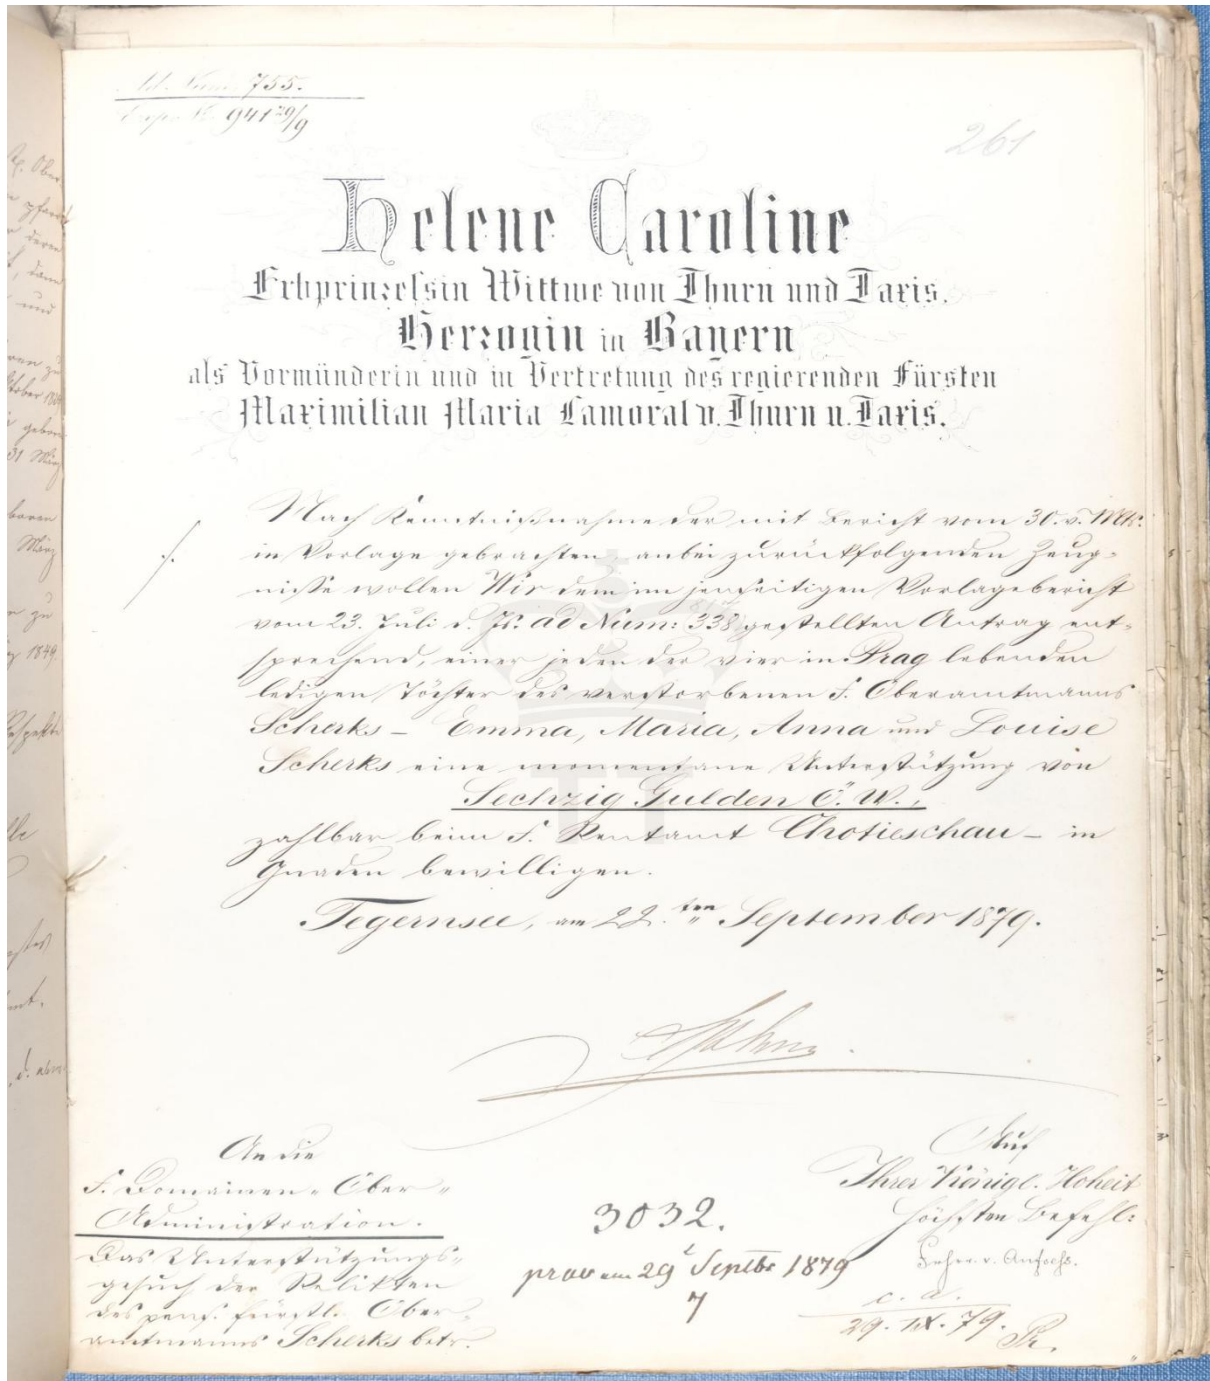 Ad. Num. 755.
Exp. N. 941 29/9
261
Helene Caroline
Erbprinzessin Wittwe von Thurn und Taxis.
Herzogin in Bayern
als Vormünderin und in Vertretung des regierenden Fürsten
Maximilian Maria Lamoral v. Thurn u. Taxis.
Nach Kenntnißnahme der mit Bericht vom 30. v. Mts.
in Vorlage gebrachten, anbei zurückfolgenden Zeug-
nisse wollen Wir dem im jenseitigen Vorlagebericht
vom 23. Juli d. Js. ad Num: 338 gestellten Antrag ent-
sprechend, einer jeden der vier in Prag lebenden
ledigen Töchter des verstorbenen f. Oberamtmanns
Scherks – Emma, Maria, Anna und Louise
Scherks eine momentane Unterstützung von
Sechzig Gulden Ö. W.,
zahlbar beim f. Rentamt Chotieschau – in
Gnaden bewilligen.
Tegernsee, am 22. ten September 1879.
An die
f. Domainen-Ober-
Administration.
Das Unterstützungs-
gesuch der Relikten
des pens. fürstl. Ober-
amtmanns Scherks betr.
3032.
praes am 29 Septbr 1879
7
Auf
Ihrer Königl. Hoheit
höchsten Befehl:
c. a.
29. IX. 79.
TT